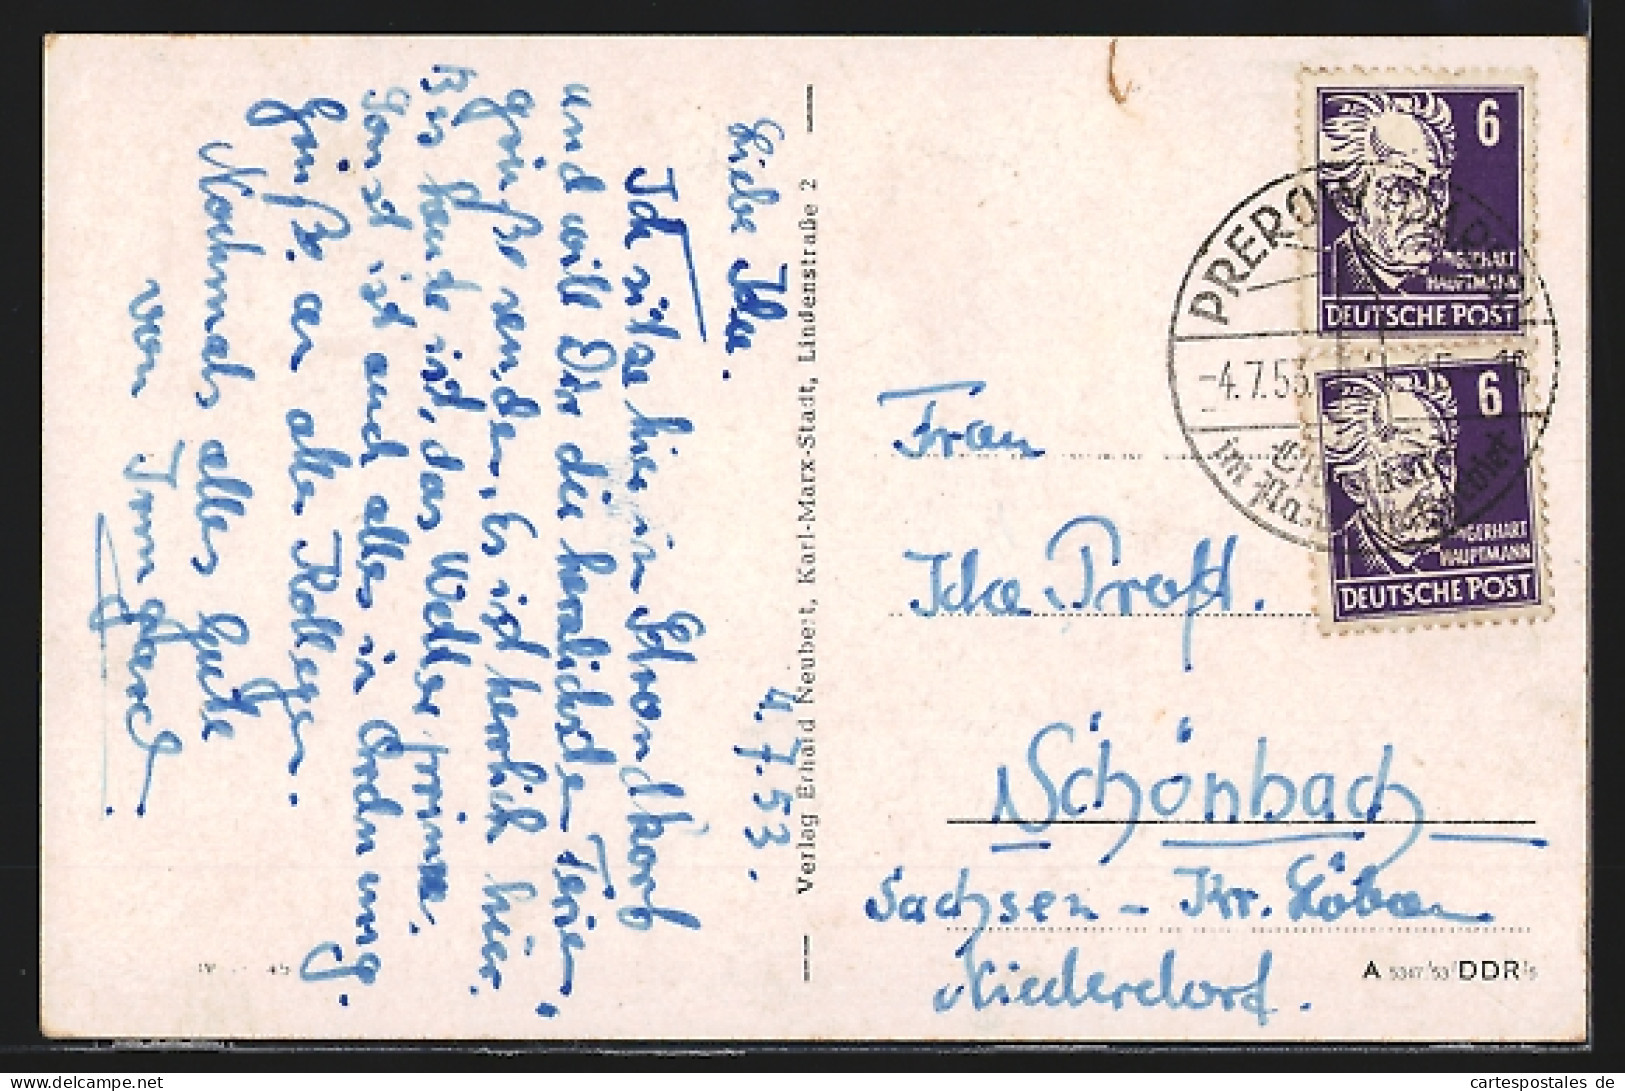 Liebe Ilse. 4.7.53.
Ich sitze hier im Strandkorb
und will Dir die herzlichsten Ferien-
grüße senden. Es ist herrlich hier.
Bis heute ist das Wetter prima.
Sonst ist auch alles in Ordnung.
Grüße an alle Kollegen.
Nochmals alles Gute
von
Verlag Erhard Neubert, Karl-Marx-Stadt, Lindenstraße 2
6
GERHART
HAUPTMANN
DEUTSCHE POST
6
GERHART
HAUPTMANN
DEUTSCHE POST
PREROW
-4.7.53
Frau
Ilse Proft.
Schönbach
Sachsen - Kr. Löbau
Niederdorf.
A 5347/53/DDR/5
cartespostales de